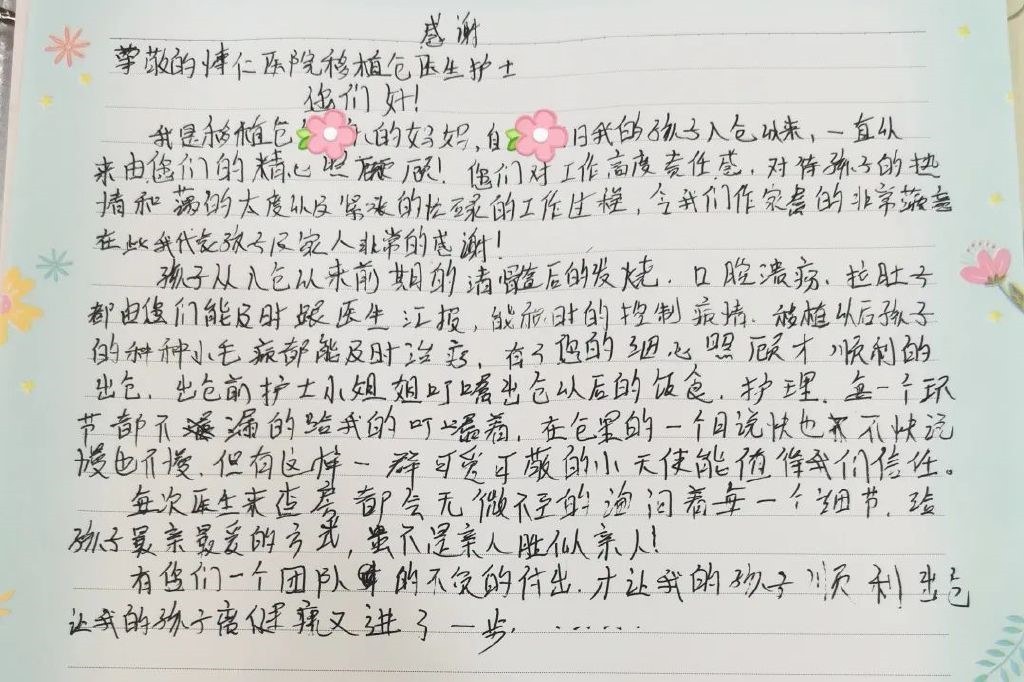 感谢
尊敬的博仁医院移植仓医生护士
您们好!
我是移植仓的妈妈,自日我的孩子入仓以来,一直以
来由您们的精心照顾!您们对工作高度责任感,对待孩子的热
情和蔼的太度以及紧张的忙碌的工作过程,令我们作家长的非常
在此我代表孩子及家人非常的感谢!
孩子从入仓以来前期的清髓后的发烧.口腔溃疡.拉肚子
都由您们能及时跟医生汇报,能及时的控制病情.移植以后孩子
的种种小毛病都能及时治疗,有了您的细心照顾才顺利的
出仓.出仓前护士小姐姐叮嘱出仓以后的饭食.护理.每一个环
节都不漏的给我的叮嘱着,在仓里的一个月说快也不快说
慢也不慢.但有这样一群可爱可敬的小天使能值得我们信任。
每次医生来查房都会无微不至的询问着每一个细节,给
孩子最亲最爱的方式,虽不是亲人胜似亲人!
有您们一个团队的不负的付出.才让我的孩子顺利出仓
让我的孩子离健康又进了一步,......